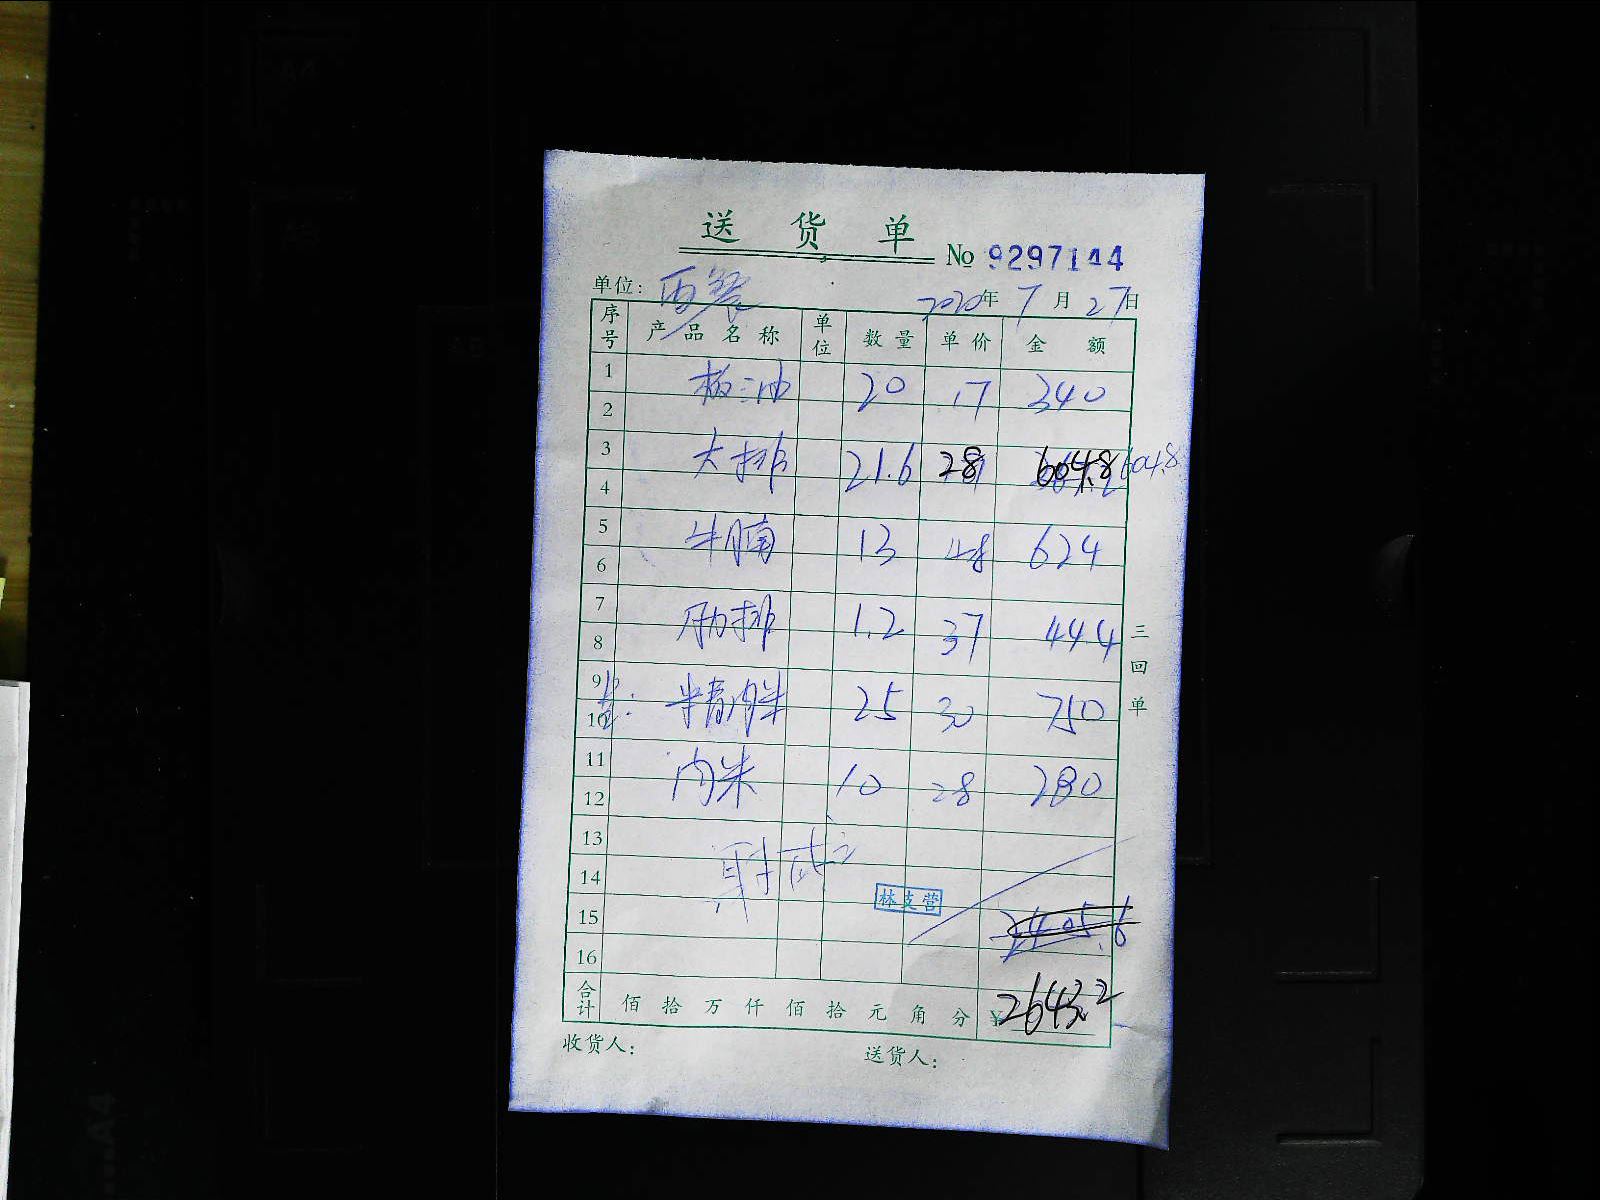 送 货 单
No 9297144
单位: 西餐 2020年 7月 27日
序号 产品名称 单位 数量 单价 金额
1 板油 20 17 340
2
3 大排 21.6 28 604.8 604.8
4
5 牛腩 13 48 624
6
7 肋排 1.2 37 44.4
8
9 半精肉米 25 30 750
10
11 肉米 10 28 280
12
13
14
林支营
15 2405.6
16
合计 佰 拾 万 仟 佰 拾 元 角 分 ¥2643.2
收货人: 送货人:
三回单